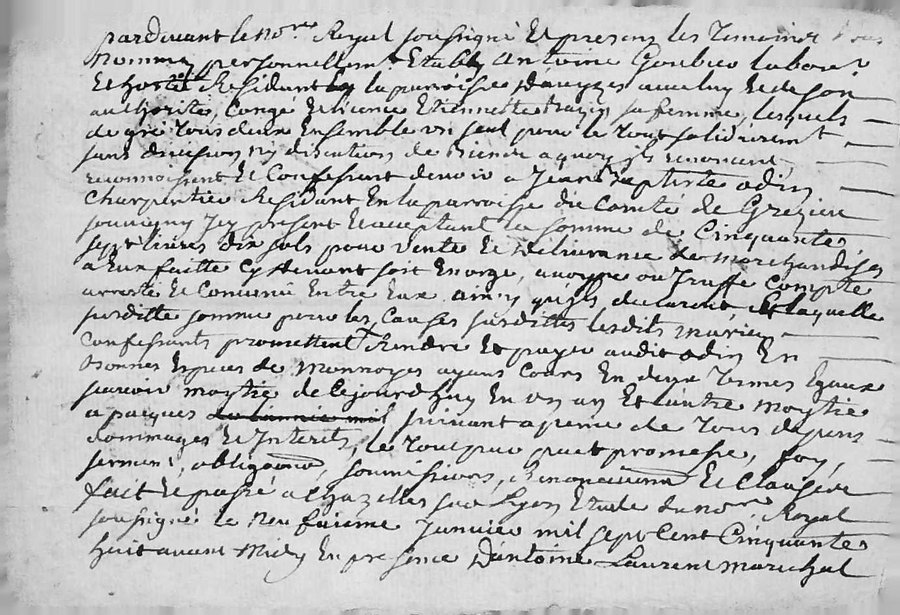 pardevant le no.re Royal soussigné Et presens les Temoins Bas
Nommes personnellem.t Etably Antoine Goubier labour.r
Et Residant la parroisse D'auyzes avec luy et de son
authorités, Congé Et licence Etiennette sa femme, lesquels
de gré tous deux Ensemble un seul pour le tout solidairem.t
sans division ny discution de Biens a quoy ils renoncent
reconnoissent Et Confessent devoir a Jean Baptiste odin
Charpentier Residant En la parroisse du Comté de Grezieu
souvigny Icy present Et aceptant la somme de Cinquantes
sept livres dix sols pour vente Et Delivrance de Marchandises
a Eux faitte Cy devant soit En orge, avoyne ou Truffe Compte
arresté Et Convenu Entre Eux ainsy qu'ils declarent Et laquelle
surditte somme pour les Causes surdittes lesdits Mariés
Confessants promettent Rendre Et payer audit odin En
Bonnes Especes de Monnoyes ayant Cours En deux Termes Egaux
scavoir moytié de Cejourd'huy En un an Et l'autre Moytié
a paques suivant a peine de Tous depens
dommages Et Interets, le Tout par pact promesse, foy,
serment, obligaõns, soumissions, Renonciaõns Et Clauses
fait Et passé a Chazelles sur Lyon Etude du no.re Royal
soussigné le Neufaième Janvier mil sept Cent Cinquantes
huit avant Midy En presence D'antoine Laurent Marechal